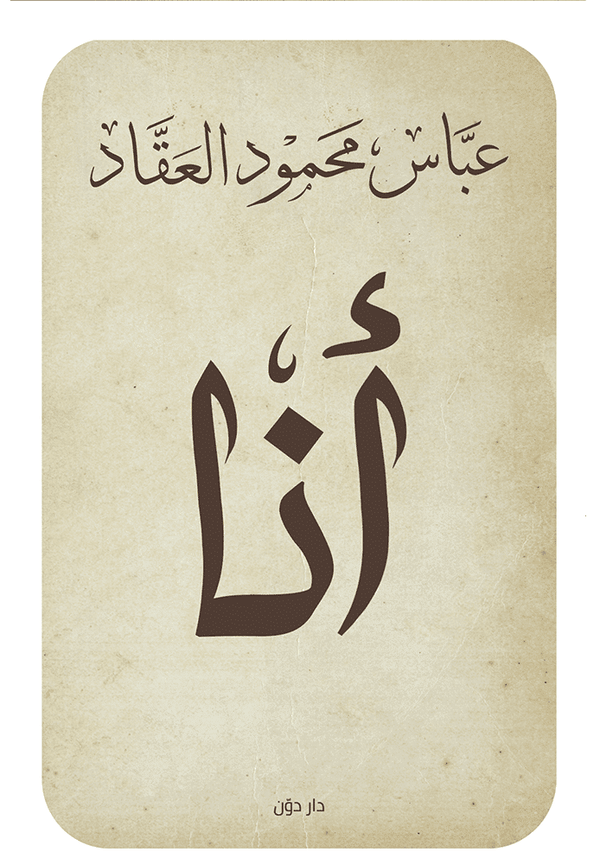 عبَّاس محمْود العَقَّاد
أنا
دار دوّن